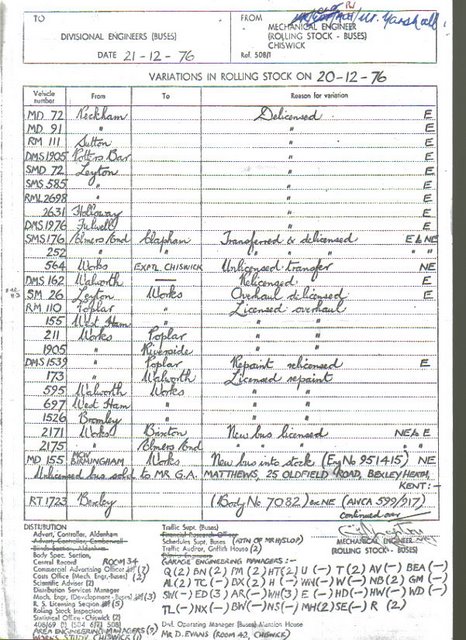 TO
DIVISIONAL ENGINEERS (BUSES)
DATE 21-12-76
FROM
MECHANICAL ENGINEER
(ROLLING STOCK - BUSES)
CHISWICK
Ref. 508/1
VARIATIONS IN ROLLING STOCK ON 20-12-76
Vehicle number From To Reason for variation
MD 72 Peckham Delicensed E
MD 91 " " E
RM 111 Sutton " E
DMS 1905 Potters Bar " E
SMD 72 Leyton " E
SMS 585 " " E
RML 2698 " " E
2631 Holloway " E
DMS 1976 Fulwell " E
SMS 176 Elmers End Clapham Transferred & delicensed E & NE
252 " " " " "
564 Works EXPTL. CHISWICK Unlicensed transfer NE
DMS 162 Walworth — Relicensed E
SM 26 Leyton Works Overhaul delicensed E
RM 110 Poplar " Licensed overhaul
155 West Ham " " "
211 Works Poplar " "
1905 " Riverside " "
DMS 1539 " Poplar Repaint relicensed E
173 " Walworth Licensed repaint
595 Walworth Works " "
697 West Ham " " "
1526 Bromley " " "
2171 Works Brixton New bus licensed NE & E
2175 " Elmers End " " "
MD 155 MCW BIRMINGHAM Works New bus into stock (Eng No 951415) NE
Unlicensed bus sold to MR G.A. MATTHEWS, 25 OLDFIELD ROAD, BEXLEY HEATH,
KENT :-
RT 1723 Bexley (Body No 7082) ex NE (AVCA 599/917)
continued over
MECHANICAL ENGINEER
(ROLLING STOCK - BUSES)
DISTRIBUTION
Advert. Controller, Aldenham
Body Supt. Section,
Central Record ROOM 34
Commercial Advertising Officer (2)
Costs Office (Mech. Engr. Buses) (2)
Distribution Services Manager
Mech. Engr. Development (Buses) (3)
R. S. Licensing Section (5)
Rolling Stock Inspector
Statistical Office - Chiswick (2)
AREA ENGINEERING MANAGERS (3)
Traffic Supt. (Buses)
Schedules Supt. Buses (ATTN OF MR HYSLOP)
Traffic Auditor, Griffith House (2)
GARAGE ENGINEERING MANAGERS :-
Div. Operating Manager (Buses) Manston House
Mr D. EVANS (ROOM 42, CHISWICK)